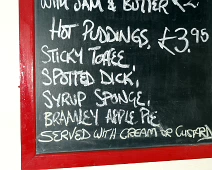 WITH JAM & BUTTER
HOT PUDDINGS, £3.95
STICKY TOFFEE,
SPOTTED DICK,
SYRUP SPONGE,
BRAMLEY APPLE PIE
SERVED WITH CREAM OR CUSTARD